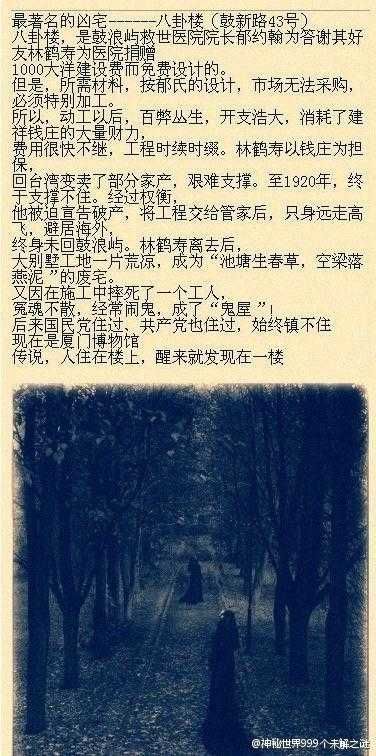 最著名的凶宅------八卦楼（鼓新路43号）
八卦楼，是鼓浪屿救世医院院长郁约翰为答谢其好
友林鹤寿为医院捐赠
1000大洋建设费而免费设计的。
但是，所需材料，按郁氏的设计，市场无法采购，
必须特别加工。
所以，动工以后，百弊丛生，开支浩大，消耗了建
祥钱庄的大量财力，
费用很快不继，工程时续时缀。林鹤寿以钱庄为担
保，
回台湾变卖了部分家产，艰难支撑。至1920年，终
于支撑不住。经过权衡，
他被迫宣告破产，将工程交给管家后，只身远走高
飞，避居海外，
终身未回鼓浪屿。林鹤寿离去后，
大别墅工地一片荒凉，成为“池塘生春草，空梁落
燕泥”的废宅。
又因在施工中摔死了一个工人，
冤魂不散，经常闹鬼，成了“鬼屋”！
后来国民党住过、共产党也住过，始终镇不住
现在是厦门博物馆
传说，人住在楼上，醒来就发现在一楼
@神秘世界999个未解之谜